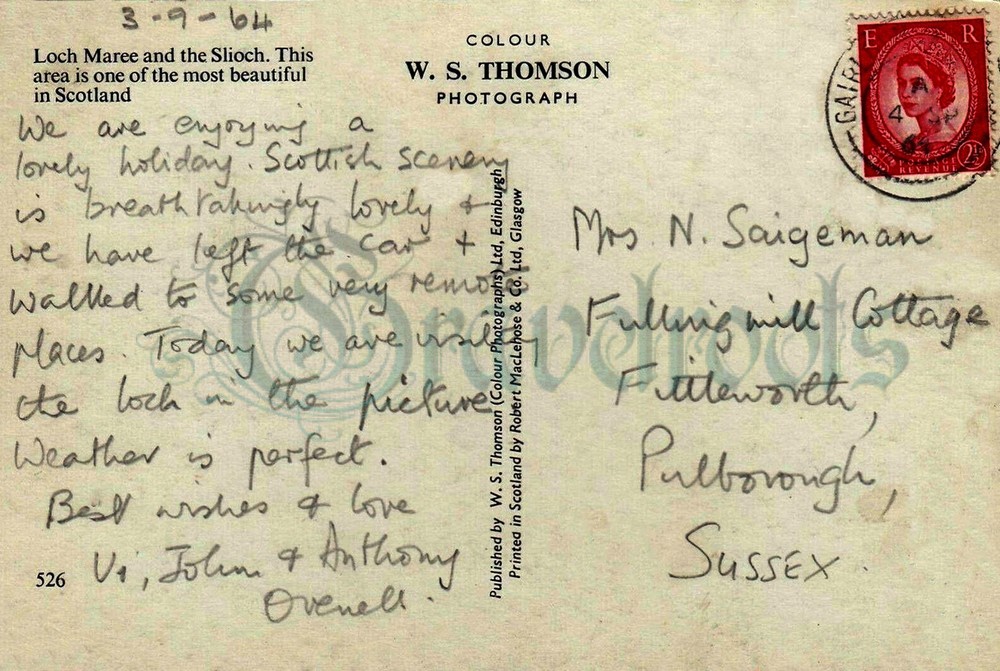 3-9-64
Loch Maree and the Slioch. This
area is one of the most beautiful
in Scotland
We are enjoying a
lovely holiday. Scottish scenery
is breathtakingly lovely +
we have left the car +
walked to some very remote
places. Today we are visiting
the loch in the picture
Weather is perfect.
Best wishes & love
Vi, John & Anthony
Ovenell.
526
COLOUR
W. S. THOMSON
PHOTOGRAPH
Published by W. S. Thomson (Colour Photographs) Ltd, Edinburgh
Printed in Scotland by Robert MacLehose & Co. Ltd, Glasgow
E R
REVENUE
2½
GAIRL
A
4 SP
64
Mrs N. Saigeman
Fullingmill Cottage
Fittleworth,
Pulborough,
SUSSEX.
Gravelroots